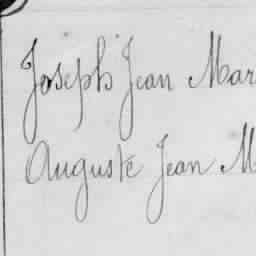 Joseph Jean Mar
Auguste Jean M